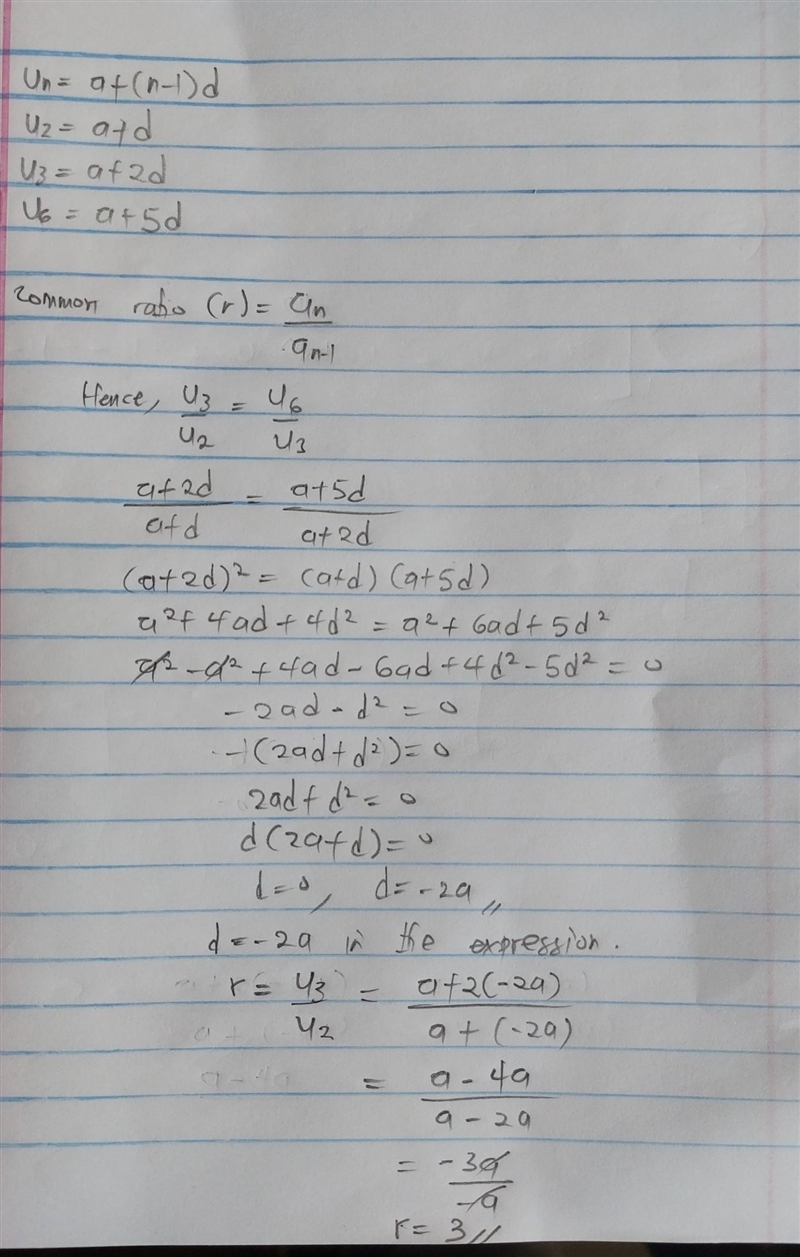 Un = a+(n-1)d
U2 = a+d
U3 = a+2d
U6 = a+5d
Common ratio (r) = an / an-1
Hence, U3/U2 = U6/U3
(a+2d)/(a+d) = (a+5d)/(a+2d)
(a+2d)² = (a+d)(a+5d)
a²+4ad+4d² = a²+6ad+5d²
a²-a²+4ad-6ad+4d²-5d² = 0
-2ad-d² = 0
-(2ad+d²) = 0
2ad+d² = 0
d(2a+d) = 0
d=0, d=-2a //
d=-2a in the expression.
r = U3/U2 = (a+2(-2a))/(a+(-2a))
= (a-4a)/(a-2a)
= -3a/-a
r = 3 //